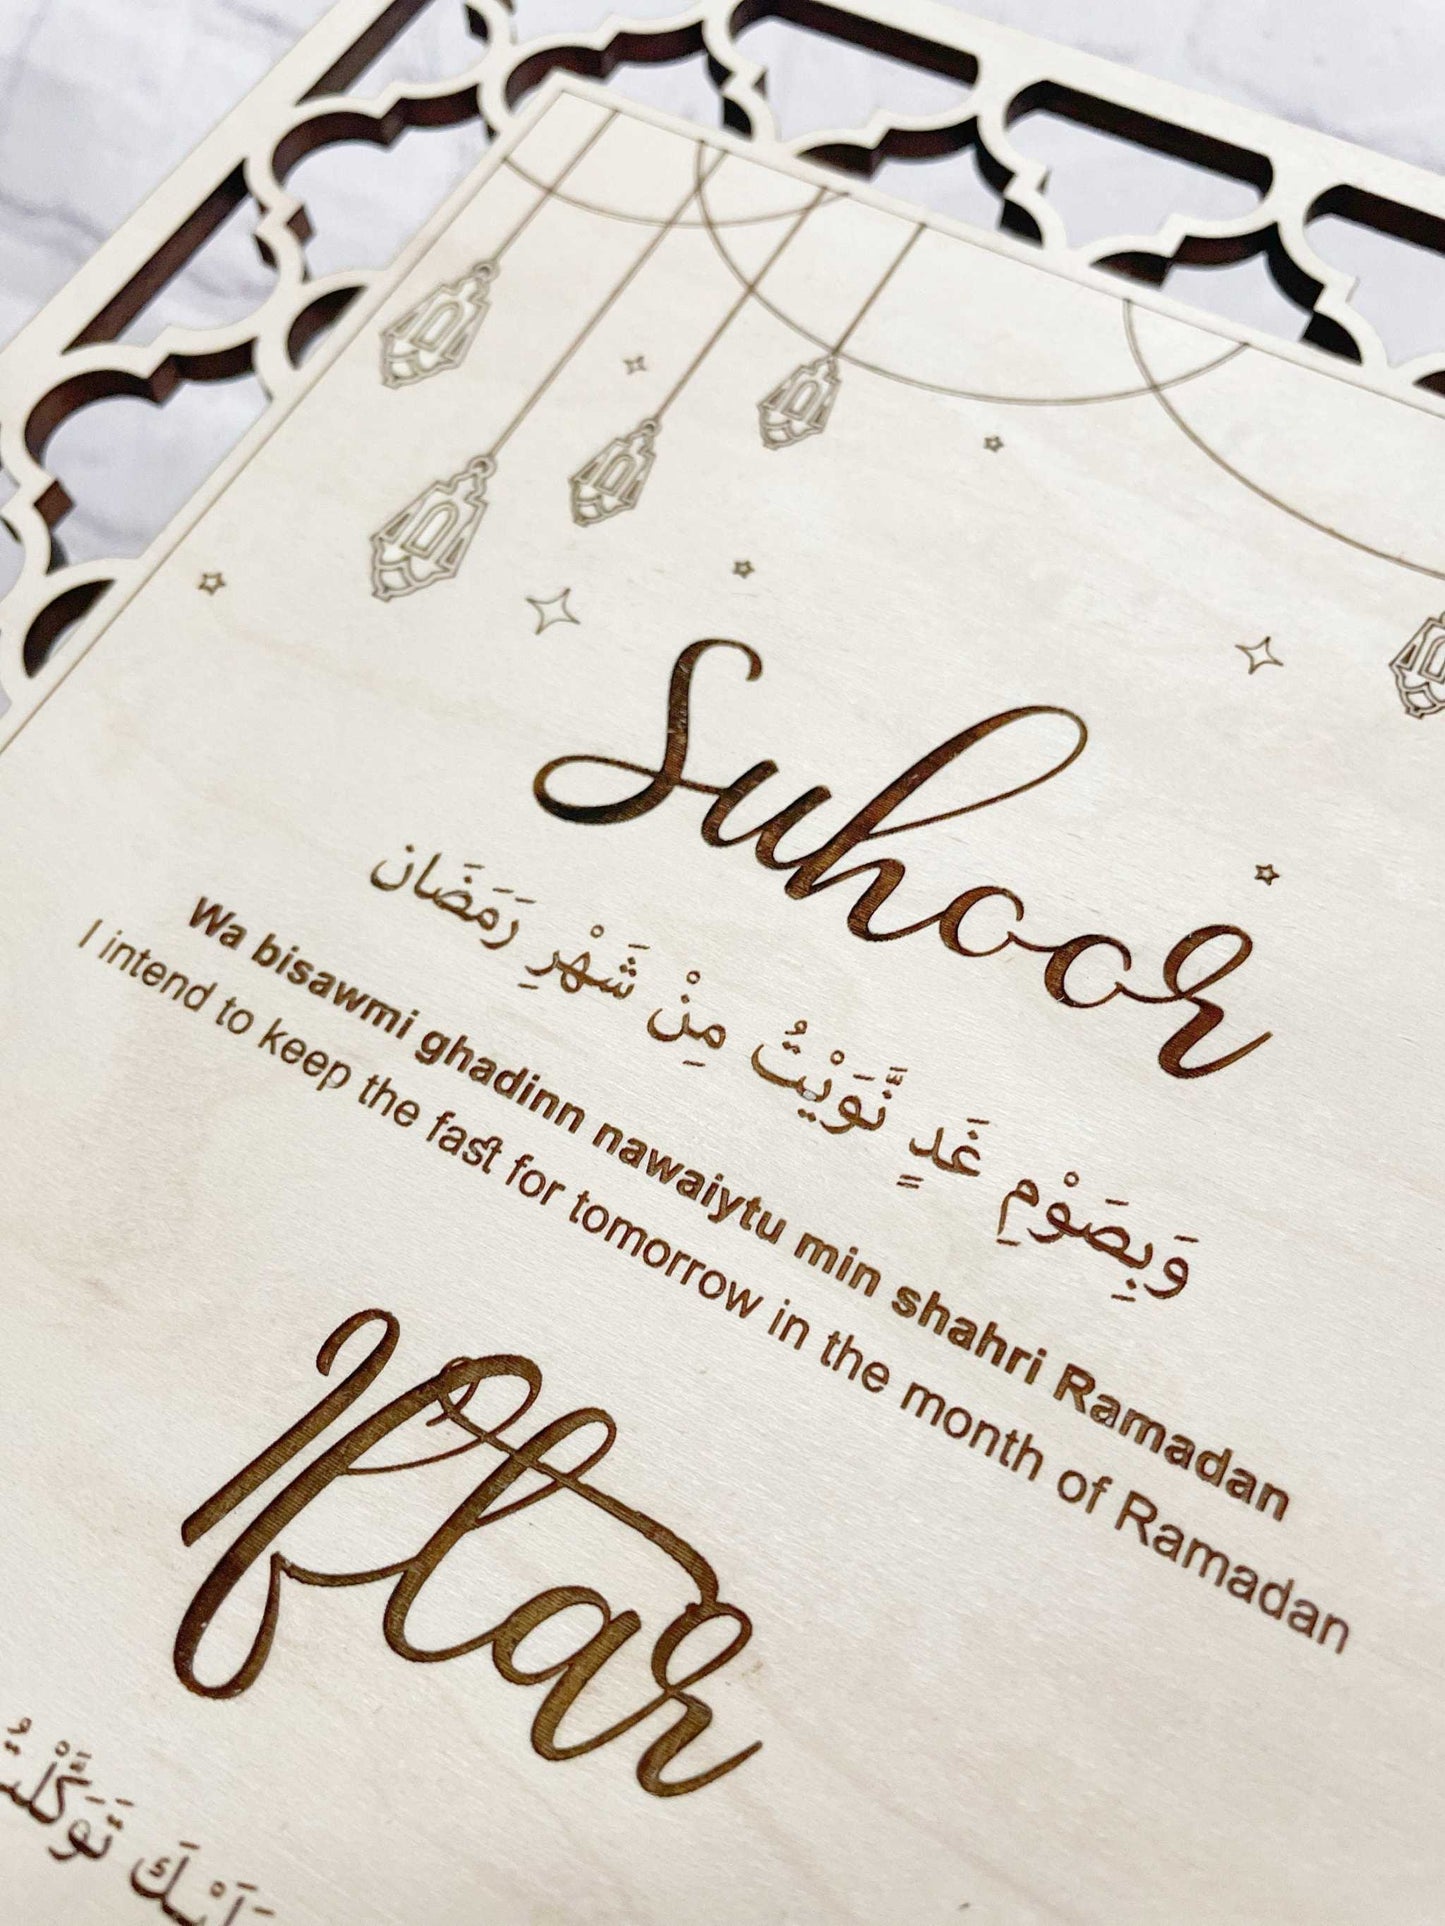 Suhoor
وَبِصَوْمِ غَدٍ نَّوَيْتُ مِنْ شَهْرِ رَمَضَان
Wa bisawmi ghadinn nawaiytu min shahri Ramadan
I intend to keep the fast for tomorrow in the month of Ramadan
Iftar
تَوَكَّلْتُ